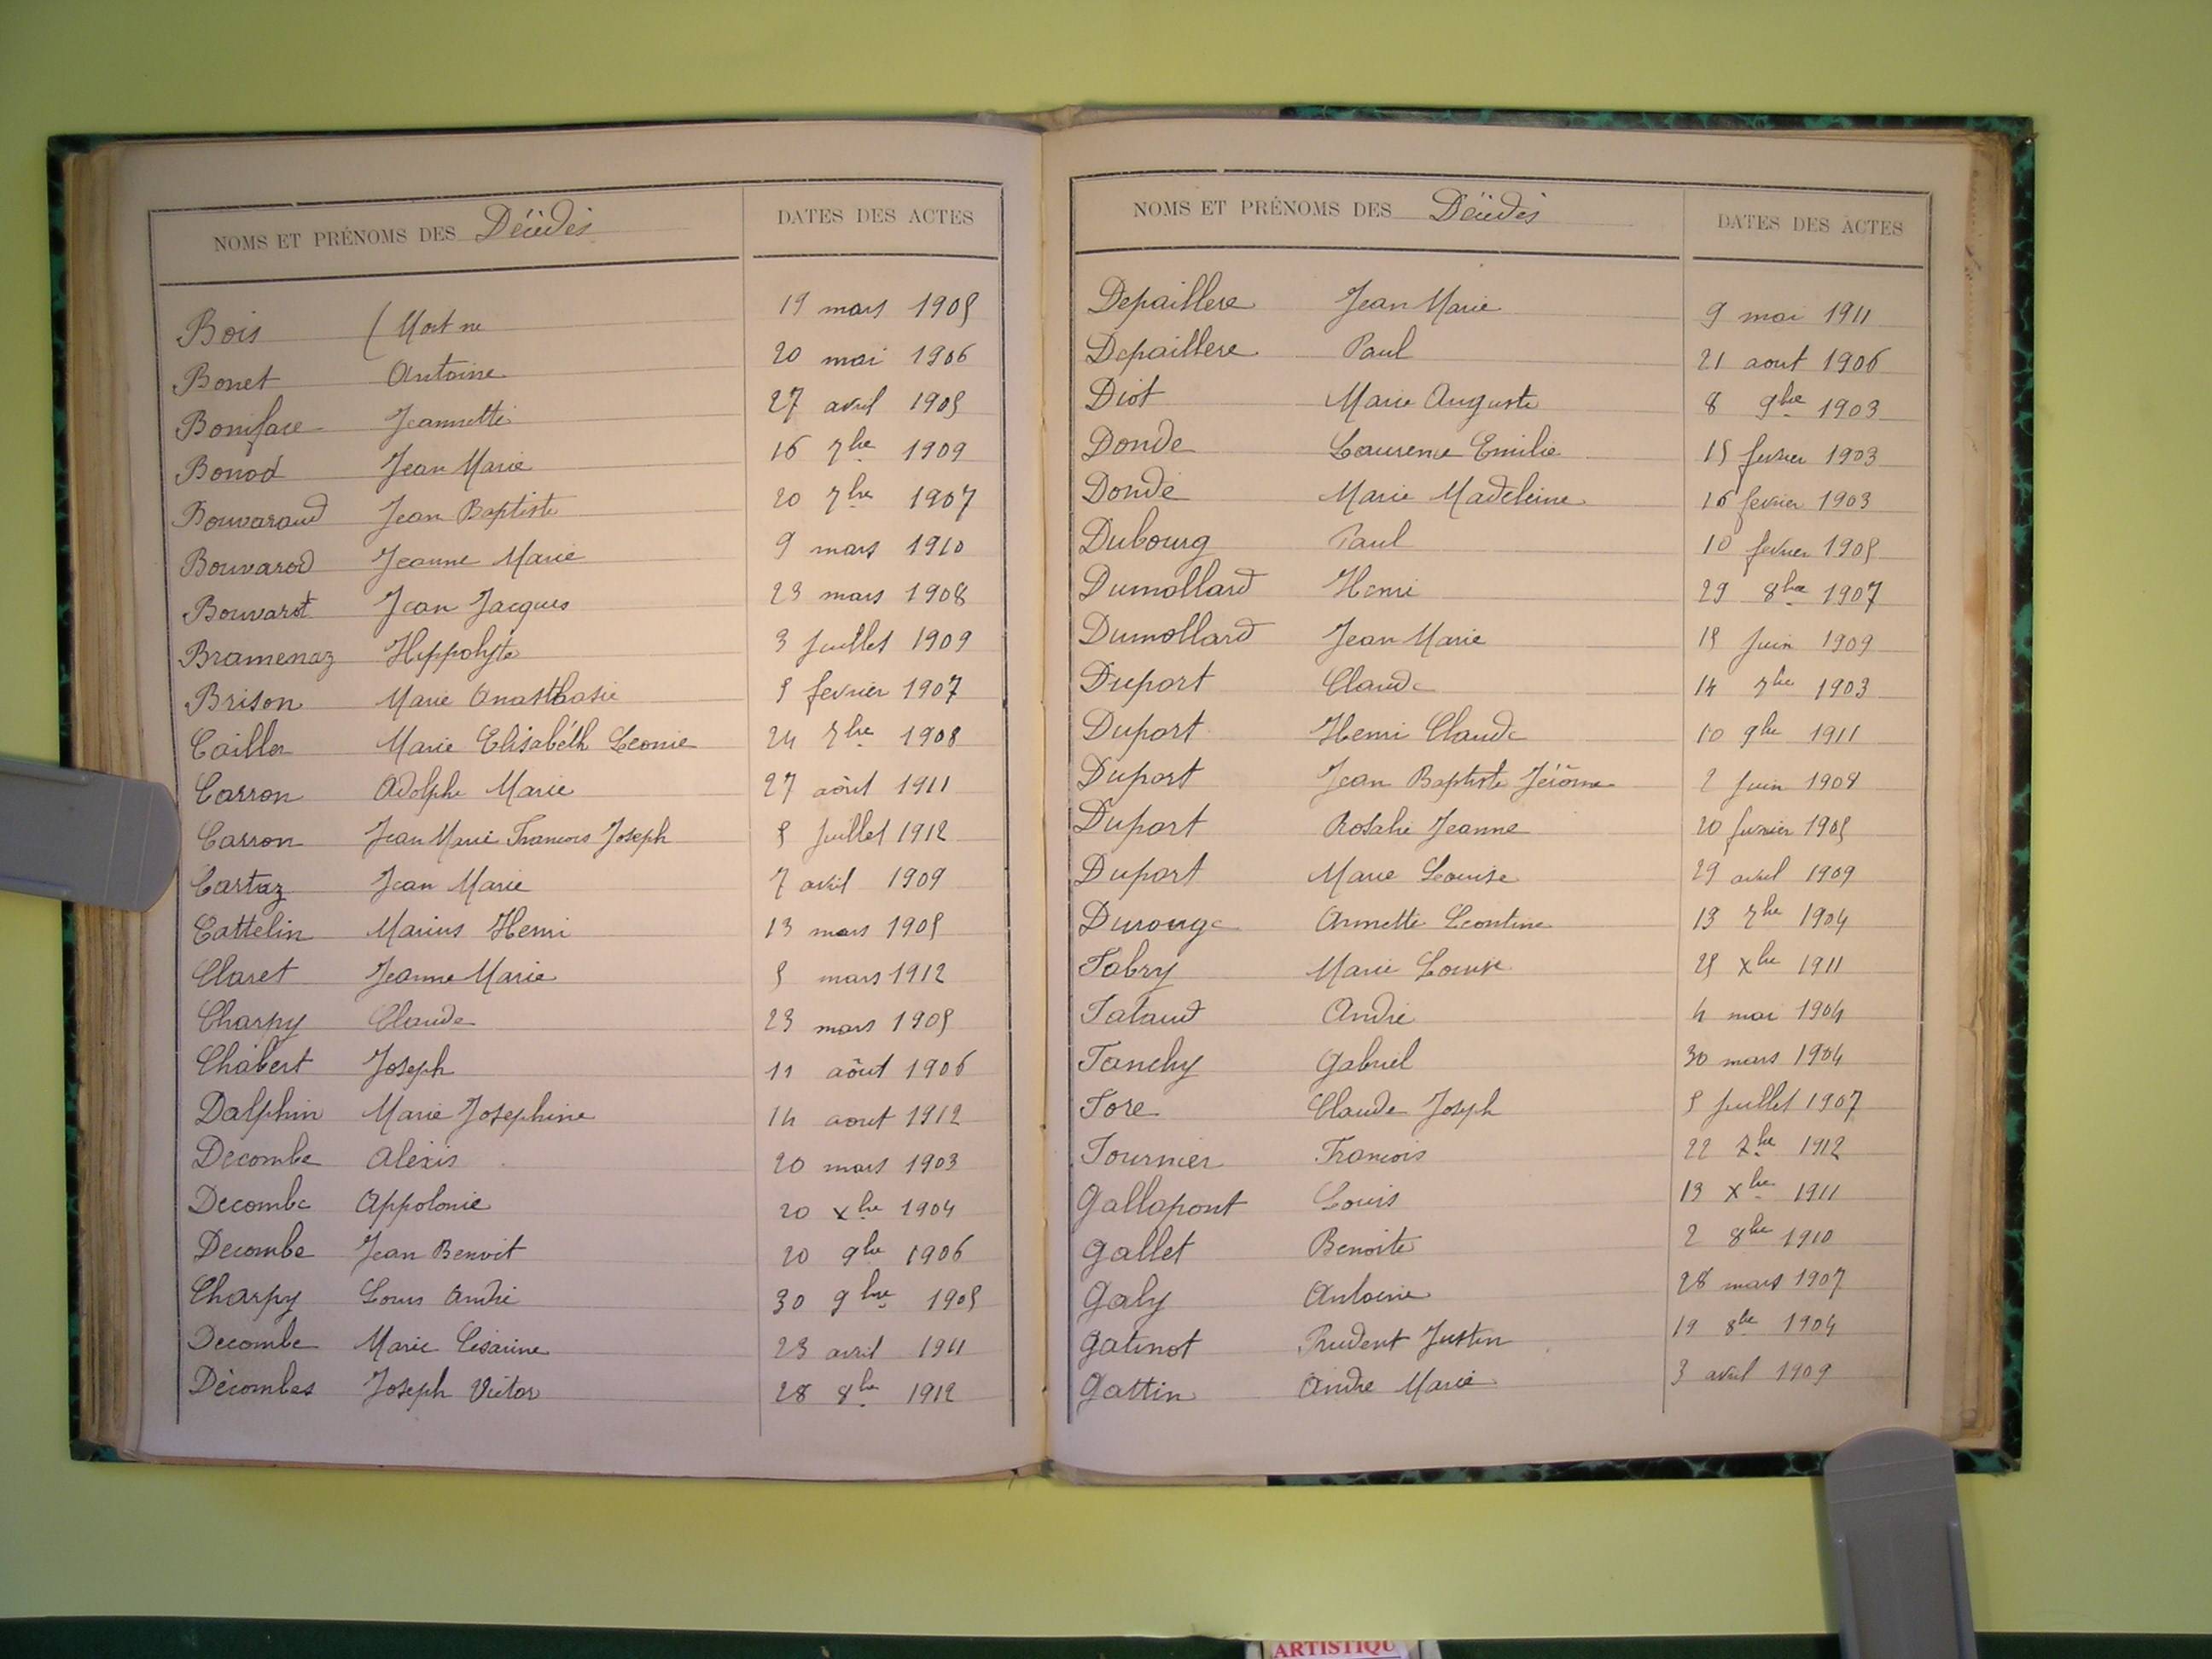 NOMS ET PRÉNOMS DES Décédés DATES DES ACTES
Bois (Mort né 19 mars 1905
Bonet Antoine 20 mai 1906
Boniface Jeannette 27 avril 1905
Bonod Jean Marie 16 7bre 1909
Bouvaraud Jean Baptiste 20 7bre 1907
Bouvarod Jeanne Marie 9 mars 1910
Bouvarot Jean Jacques 23 mars 1908
Bramenaz Hippolyte 3 juillet 1909
Brison Marie Anasthasie 5 fevrier 1907
Cailler Marie Elisabéth Leonie 24 7bre 1908
Carron Adolphe Marie 27 aôut 1911
Carron Jean Marie Francois Joseph 5 juillet 1912
Cartaz Jean Marie 7 avril 1909
Cattelin Marius Henri 13 mars 1905
Claret Jeanne Marie 5 mars 1912
Charpy Claude 23 mars 1905
Chabert Joseph 11 aôut 1906
Dalphin Marie Josephine 14 aout 1912
Decombe Alexis 20 mars 1903
Decombe Appolonie 20 xbre 1904
Decombe Jean Benoit 20 9bre 1906
Charpy Louis André 30 9bre 1905
Decombe Marie Césarine 23 avril 1911
Décombes Joseph Victor 28 8bre 1912
NOMS ET PRÉNOMS DES Décédés DATES DES ACTES
Depaillere Jean Marie 9 mai 1911
Depaillere Paul 21 aout 1906
Diot Marie Auguste 8 9bre 1903
Donde Laurence Emilie 15 fevrier 1903
Donde Marie Madeleine 16 fevrier 1903
Dubourg Paul 10 fevrier 1905
Dumollard Henri 29 8bre 1907
Dumollard Jean Marie 15 juin 1909
Duport Claude 14 7bre 1903
Duport Henri Claude 10 9bre 1911
Duport Jean Baptiste Jérôme 2 juin 1908
Duport Rosalie Jeanne 20 fevrier 1905
Duport Marie Louise 29 avril 1909
Durouge Annette Leontine 13 7bre 1904
Fabry Marie Louise 25 xbre 1911
Falaud André 4 mai 1904
Fanchy Gabriel 30 mars 1904
Fore Claude Joseph 5 juillet 1907
Fournier Francois 22 7bre 1912
Gallapont Louis 13 xbre 1911
Gallet Benoite 2 8bre 1910
Galy Antoine 28 mars 1907
Gatinot Prudent Justin 19 8bre 1904
Gattin André Marie 3 avril 1909
ARTISTIQU